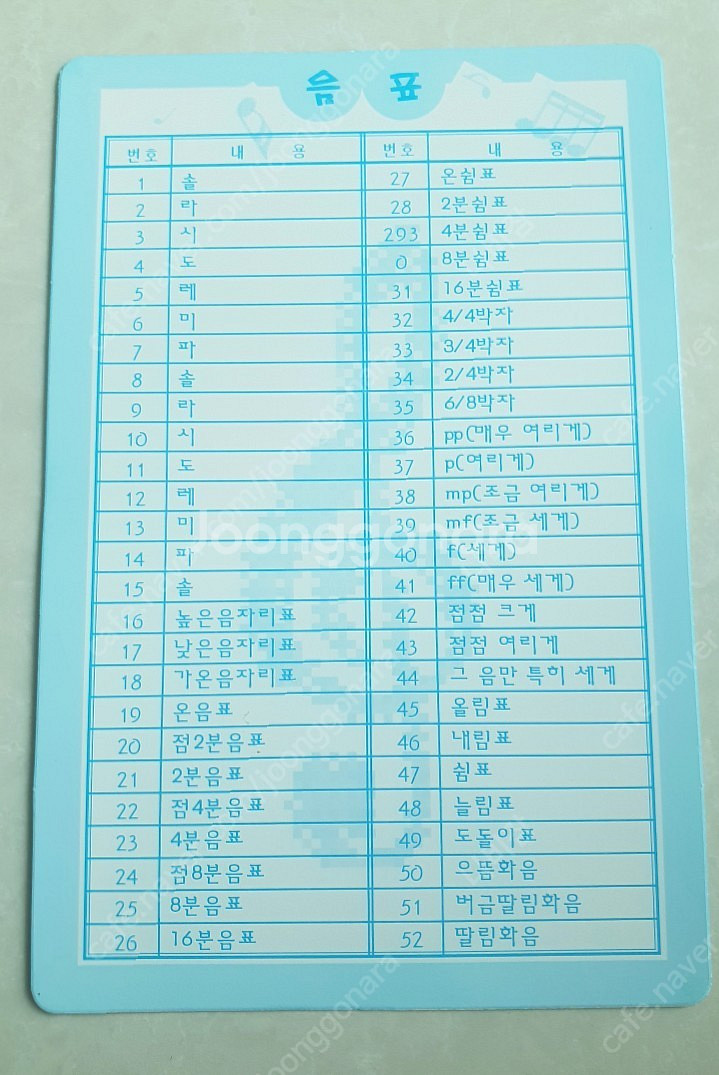 음 표
번호 내 용 번호 내 용
1 솔 27 온쉼표
2 라 28 2분쉼표
3 시 293 4분쉼표
4 도 0 8분쉼표
5 레 31 16분쉼표
6 미 32 4/4박자
7 파 33 3/4박자
8 솔 34 2/4박자
9 라 35 6/8박자
10 시 36 pp(매우 여리게)
11 도 37 p(여리게)
12 레 38 mp(조금 여리게)
13 미 39 mf(조금 세게)
14 파 40 f(세게)
15 솔 41 ff(매우 세게)
16 높은음자리표 42 점점 크게
17 낮은음자리표 43 점점 여리게
18 가온음자리표 44 그 음만 특히 세게
19 온음표 45 올림표
20 점2분음표 46 내림표
21 2분음표 47 쉼표
22 점4분음표 48 늘림표
23 4분음표 49 도돌이표
24 점8분음표 50 으뜸화음
25 8분음표 51 버금딸림화음
26 16분음표 52 딸림화음
Joonggonara